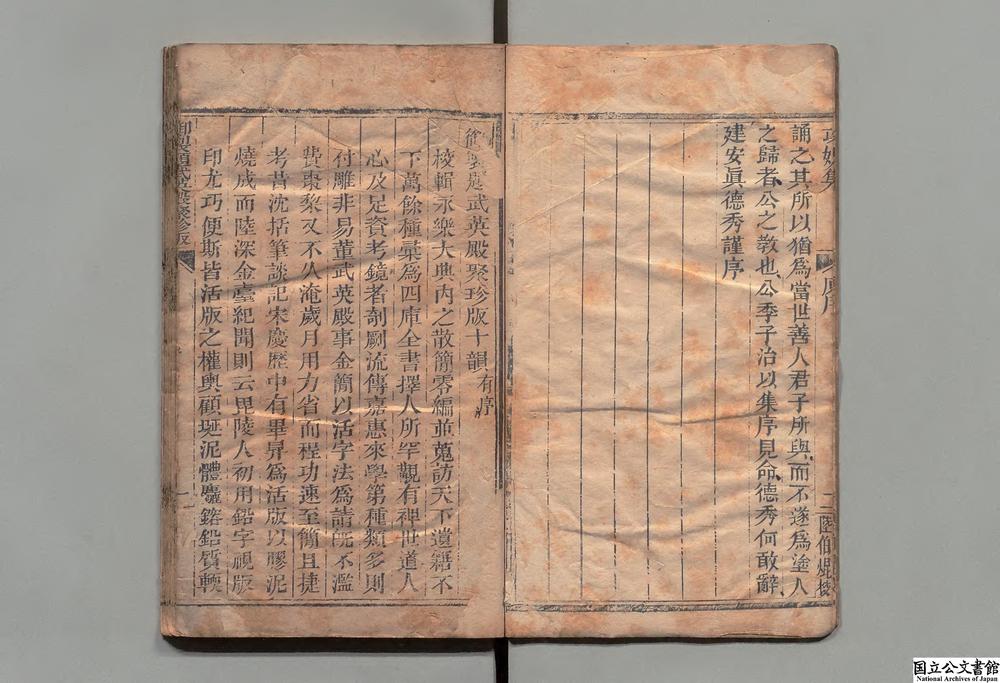 攻媿集
原序
二
陸伯焜校
誦之其所以猶為當世善人君子所與而不遂為塗人
之歸者公之敎也公季子治以集序見命德秀何敢辭
建安眞德秀謹序
御製題武英殿聚珍版十韻有序
校輯永樂大典內之散簡零編並蒐訪天下遺籍不
下萬餘種彚為四庫全書擇人所罕覯有裨世道人
心及足資考鏡者剞劂流傳嘉惠來學第種類多則
付雕非易董武英殿事金簡以活字法為請旣不濫
費棗棃又不久淹歲月用力省而程功速至簡且捷
考昔沈括筆談記宋慶歷中有畢昇為活版以膠泥
燒成而陸深金臺紀聞則云毘陵人初用鉛字視版
印尤巧便斯皆活版之權輿顧埏泥體麤鎔鉛質輭
御製題武英殿聚珍版
一
国立公文書館
National Archives of Japan